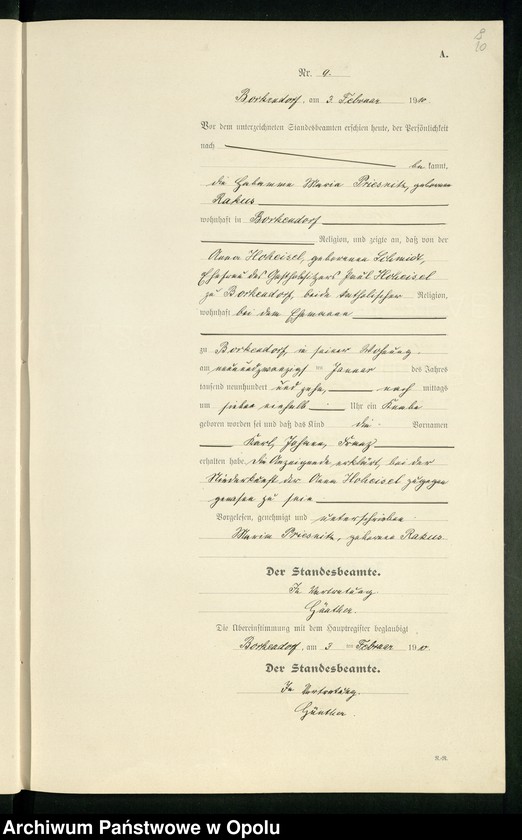 8
10
A.
Nr. 9.
Borkendorf, am 3. Februar 1910.
Vor dem unterzeichneten Standesbeamten erschien heute, der Persönlichkeit
nach
be kannt,
die Hebamme Maria Priesnitz, geborene
Rakus
wohnhaft in Borkendorf
Religion, und zeigte an, daß von der
Anna Hoheisel, geborenen Schmidt,
Ehefrau des Gasthausbesitzers Paul Hoheisel
zu Borkendorf, beide katholischer Religion,
wohnhaft bei dem Ehemanne
zu Borkendorf, in seiner Wohnung
am neunundzwanzigsten Januar des Jahres
tausend neunhundert und zehn, nach mittags
um sieben einhalb Uhr ein Knabe
geboren worden sei und daß das Kind die Vornamen
Karl, Johann, Franz
erhalten habe. Die Anzeigende erklärt, bei der
Niederkunft der Anna Hoheisel zugegen
gewesen zu sein
Vorgelesen, genehmigt und unterschrieben
Maria Priesnitz, geborene Rakus
Der Standesbeamte.
In Vertretung.
Günther.
Die Übereinstimmung mit dem Hauptregister beglaubigt
Borkendorf, am 3 Februar 1910
Der Standesbeamte.
In Vertretung.
Günther.
Archiwum Państwowe w Opolu